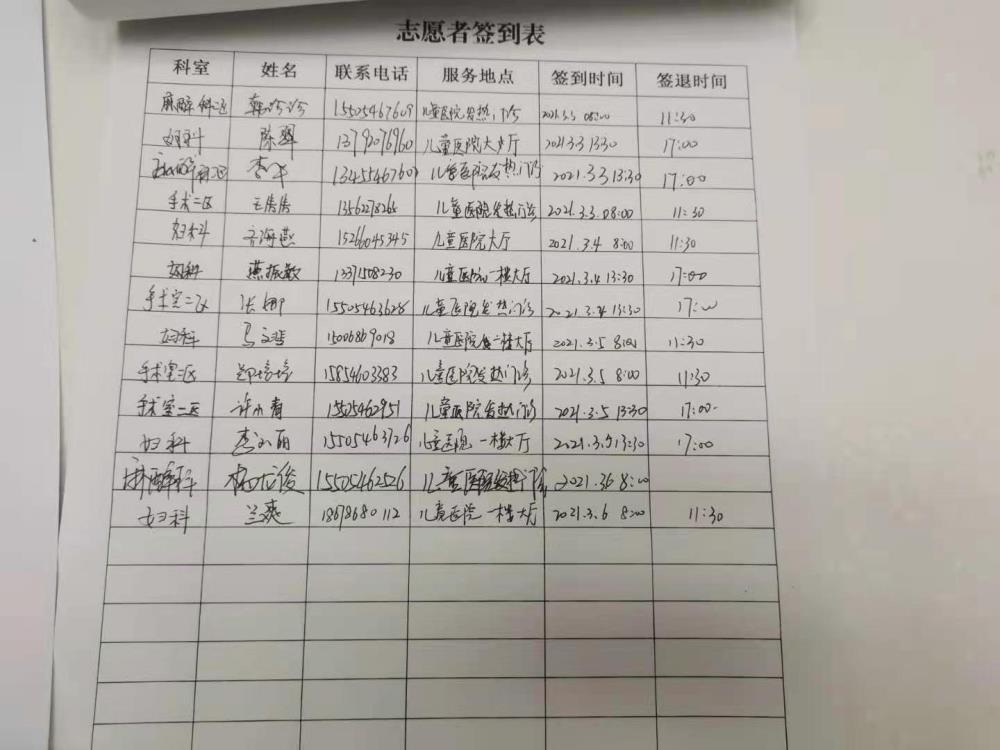 志愿者签到表
科室 姓名 联系电话 服务地点 签到时间 签退时间
麻醉科二区 韩沙沙 15505467609 儿童医院发热门诊 2021.3.3 08:00 11:30
妇科 陈翠 13792076960 儿童医院大厅 2021.3.3 13:30 17:00
李 儿童医院发热门诊 2021.3.3 13:30 17:00
手术二区 王倩倩 13562278265 儿童医院发热门诊 2021.3.3. 08:00 11:30
妇科 齐海燕 15266045345 儿童医院大厅 2021.3.4 8:00 11:30
妇科 燕振敏 13371508230 儿童医院一楼大厅 2021.3.4 13:30 17:00
手术室二区 张娜 15505463628 儿童医院发热门诊 2021.3.4 13:30 17:00
妇科 马文 15006869018 儿童医院 二楼大厅 2021.3.5 8:00 11:30
手术室二区 郑培培 15854603383 儿童医院发热门诊 2021.3.5 8:00 11:30
手术室二区 许小青 15505462951 儿童医院发热门诊 2021.3.5 13:30 17:00
妇科 李小丽 15505463726 儿童医院一楼大厅 2021.3.5 13:30 17:00
麻醉科 杨 俊 15505462526 儿童医院 门诊 2021.3.6 8:00
妇科 兰爽 18678680112 儿童医院一楼大厅 2021.3.6 8:00 11:30